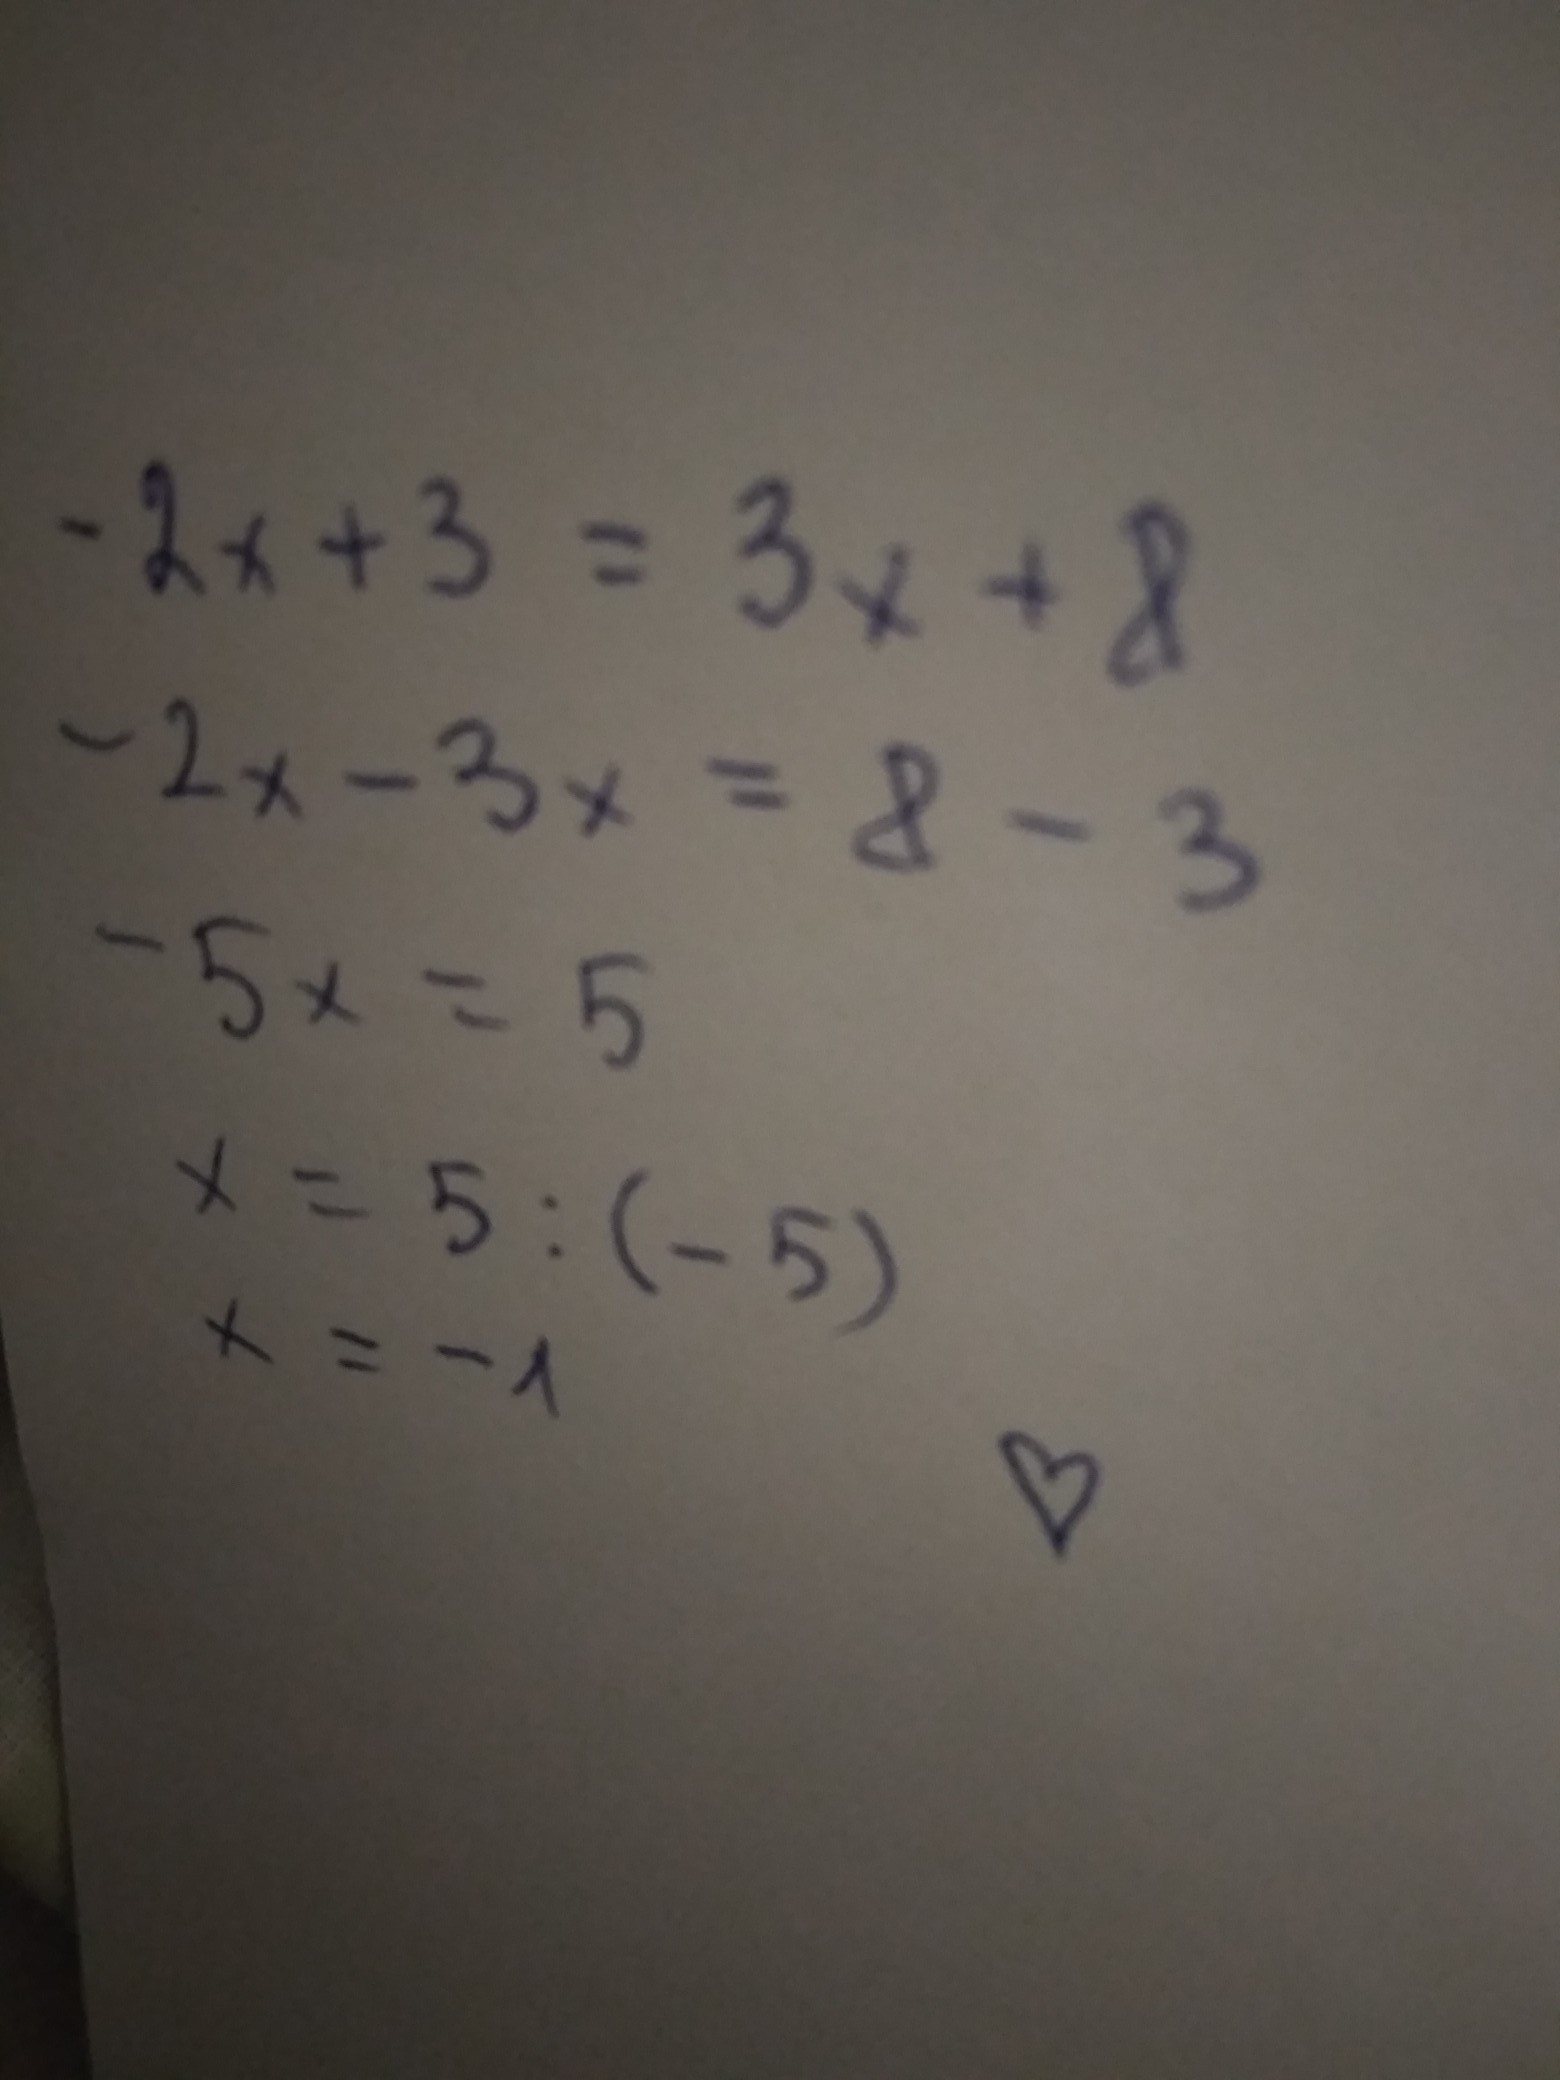 -2x+3 = 3x + 8
-2x - 3x = 8 - 3
-5x = 5
x = 5 : (-5)
x = -1
♡